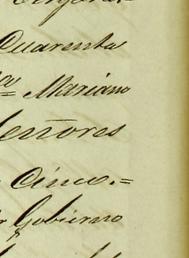 Quarenta
Mariano
Señores
Cinco.=
Gobierno